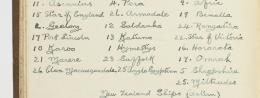 11. Ascanius 4. Pera 9. Afric
15 Star of England 26. Armadale 19 Benalla
2. Geelong 12 Saldanha 24. Rangatira
17 Port Lincoln 13 Katuna 22 Star of Victoria
10 Karoo 1 Hymettus 16 Hororata
21 Marere 23 Suffolk 17. Omrah
26 Clan Maccorquodale 25 Anglo Egyptian 5 Shropshire
25. Miltiades
New Zealand Ships